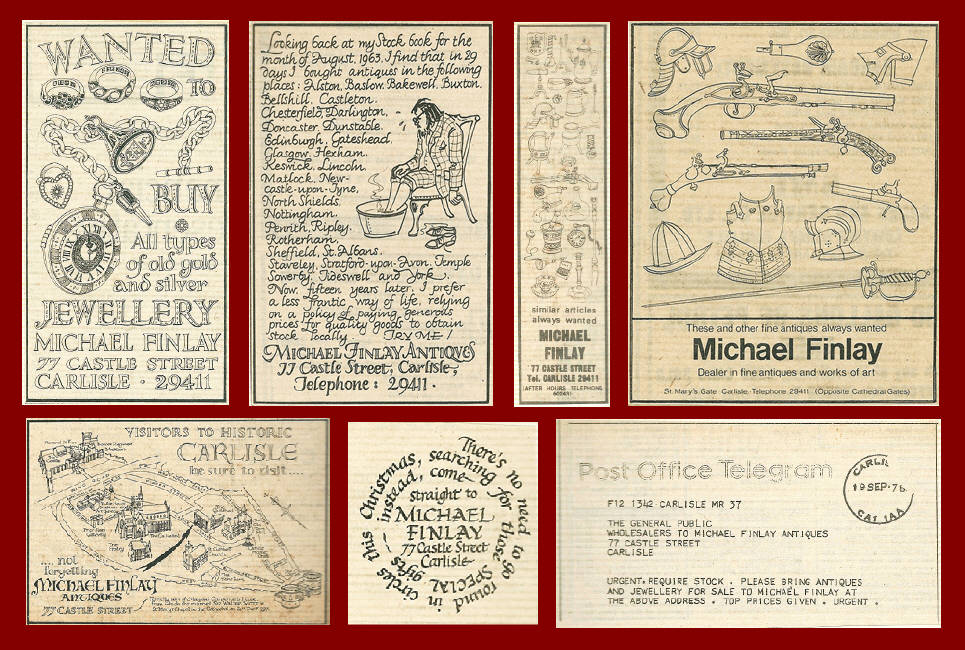 WANTED
TO
BUY
All types
of old gold
and silver
JEWELLERY
MICHAEL FINLAY
77 CASTLE STREET
CARLISLE · 29411
Looking back at my Stock book for the
month of August, 1963, I find that in 29
days I bought antiques in the following
places: Alston, Baslow, Bakewell, Buxton,
Bellshill, Castleton,
Chesterfield, Darlington,
Doncaster, Dunstable,
Edinburgh, Gateshead,
Glasgow, Hexham,
Keswick, Lincoln,
Matlock, New-
castle-upon-Tyne,
North Shields,
Nottingham,
Penrith, Ripley,
Rotherham,
Sheffield, St. Albans,
Staveley, Stratford-upon-Avon, Temple
Sowerby, Tideswell and York.
Now, fifteen years later, I prefer
a less frantic way of life, relying
on a policy of paying generous
prices for quality goods to obtain
stock locally. TRY ME
MICHAEL FINLAY ANTIQUES
77 Castle Street, Carlisle,
Telephone: 29411.
similar articles
always wanted
MICHAEL
FINLAY
77 CASTLE STREET
Tel. CARLISLE 29411
(AFTER HOURS TELEPHONE
These and other fine antiques always wanted
Michael Finlay
Dealer in fine antiques and works of art
St. Mary's Gate Carlisle Telephone 29411 (Opposite Cathedral Gates)
VISITORS TO HISTORIC
CARLISLE
be sure to visit....
.... not
forgetting
MICHAEL FINLAY
ANTIQUES
77 CASTLE STREET
There's no need to go
round in
circles this
Christmas, searching for those SPECIAL
gifts
instead, come
straight to
MICHAEL
FINLAY
77 Castle Street
Carlisle
Post Office Telegram
CARLISLE
19 SEP. 75
CA1 1AA
F12 1342 CARLISLE MR 37
THE GENERAL PUBLIC
WHOLESALERS TO MICHAEL FINLAY ANTIQUES
77 CASTLE STREET
CARLISLE
URGENT.REQUIRE STOCK . PLEASE BRING ANTIQUES
AND JEWELLERY FOR SALE TO MICHAEL FINLAY AT
THE ABOVE ADDRESS . TOP PRICES GIVEN . URGENT .